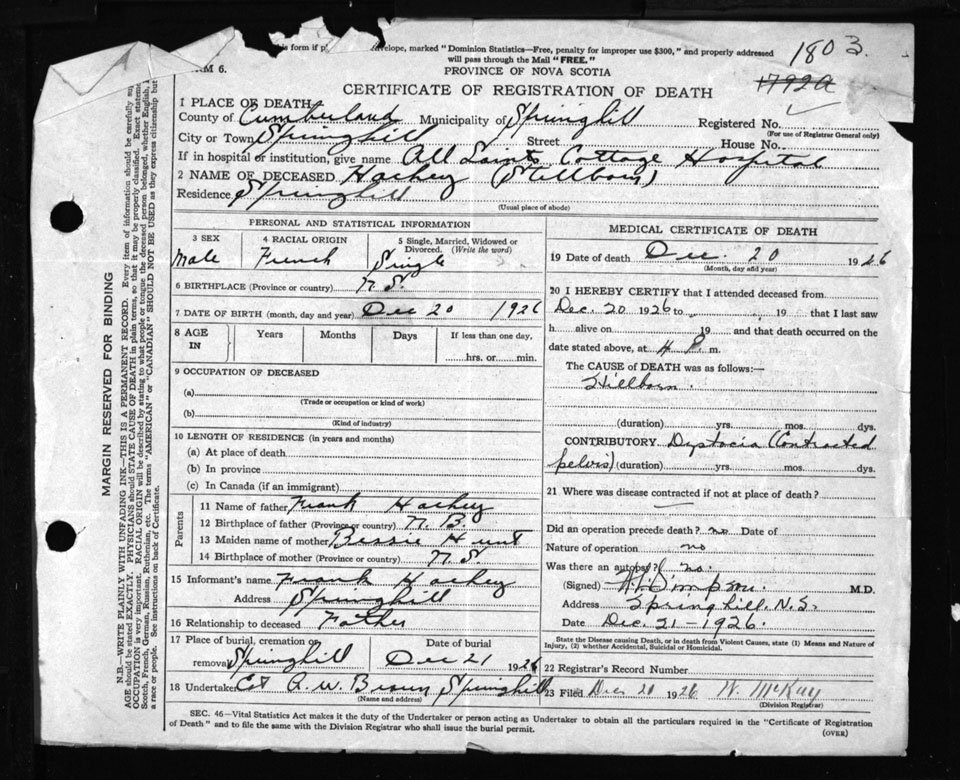 this form if envelope, marked "Dominion Statistics—Free, penalty for improper use $300," and properly addressed
will pass through the Mail "FREE."
1803
RM 6.
PROVINCE OF NOVA SCOTIA
1792a
CERTIFICATE OF REGISTRATION OF DEATH
1 PLACE OF DEATH
County of Cumberland Municipality of Springhill Registered No.
(For use of Registrar General only)
City or Town Springhill Street House No.
If in hospital or institution, give name All Saints Cottage Hospital
2 NAME OF DECEASED Hachey (Stillborn)
Residence Springhill
(Usual place of abode)
PERSONAL AND STATISTICAL INFORMATION
3 SEX
Male
4 RACIAL ORIGIN
French
5 Single, Married, Widowed or Divorced. (Write the word)
Single
6 BIRTHPLACE (Province or country) N.S.
7 DATE OF BIRTH (month, day and year) Dec 20 1926
8 AGE IN
Years
Months
Days
If less than one day,
hrs. or min.
9 OCCUPATION OF DECEASED
(a)
(Trade or occupation or kind of work)
(b)
(Kind of industry)
10 LENGTH OF RESIDENCE (in years and months)
(a) At place of death
(b) In province
(c) In Canada (if an immigrant)
Parents
11 Name of father Frank Hachey
12 Birthplace of father (Province or country) N.B.
13 Maiden name of mother Bessie Hunt
14 Birthplace of mother (Province or country) N.S.
15 Informant's name Frank Hachey
Address Springhill
16 Relationship to deceased Father
17 Place of burial, cremation or removal Springhill
Date of burial
Dec 21 1926
18 Undertaker A. W. Brown Springhill
(Name and address)
MEDICAL CERTIFICATE OF DEATH
19 Date of death Dec. 20 1926
(Month, day and year)
20 I HEREBY CERTIFY that I attended deceased from
Dec. 20 1926 to 19 that I last saw
h alive on 19 and that death occurred on
date stated above, at 4 P. m.
The CAUSE OF DEATH was as follows:—
Stillborn.
(duration) yrs. mos. dys.
CONTRIBUTORY Dystocia (Contracted
pelvis) (duration) yrs. mos. dys.
21 Where was disease contracted if not at place of death?
Did an operation precede death? no Date of
Nature of operation no
Was there an autopsy? no.
(Signed) Simpson M.D.
Address Springhill. N.S.
Date Dec. 21—1926.
State the Disease causing Death, or in death from Violent Causes, state (1) Means and Nature of
Injury, (2) whether Accidental, Suicidal or Homicidal.
22 Registrar's Record Number
23 Filed Dec 20 1926 W. McKay
(Division Registrar)
SEC. 46—Vital Statistics Act makes it the duty of the Undertaker or person acting as Undertaker to obtain all the particulars required in the "Certificate of Registration
of Death" and to file the same with the Division Registrar who shall issue the burial permit.
(OVER)
MARGIN RESERVED FOR BINDING
N.B.—WRITE PLAINLY WITH UNFADING INK—THIS IS A PERMANENT RECORD. Every item of information should be carefully
AGE should be stated EXACTLY. PHYSICIANS should STATE CAUSE OF DEATH in plain terms, so that it may be properly classified. Exact
OCCUPATION is very important. RACIAL ORIGIN will be described by stating to what people or tongue the deceased person belonged, whether English,
Scotch, French, German, Russian, Ruthenian, etc. The terms "AMERICAN" or "CANADIAN" SHOULD NOT BE USED as they express citizenship but
a race or people. See instructions on back of Certificate.